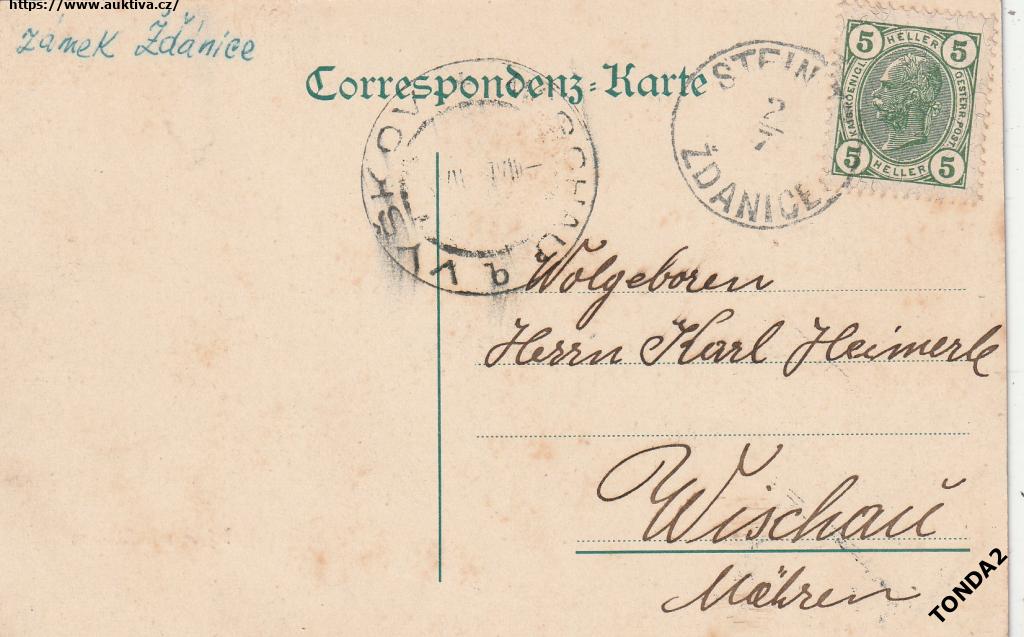 https://www.auktiva.cz/
zámek Ždánice
Correspondenz-Karte
STEIN
2
7
ŽDANICE
5 HELLER 5
KAIS. KOENIGL.
OESTERR. POST.
5 HELLER 5
VYŠKOV
WISCHAU
Wolgeboren
Herrn Karl Heimerle
Wischau
Mähren
TONDA2